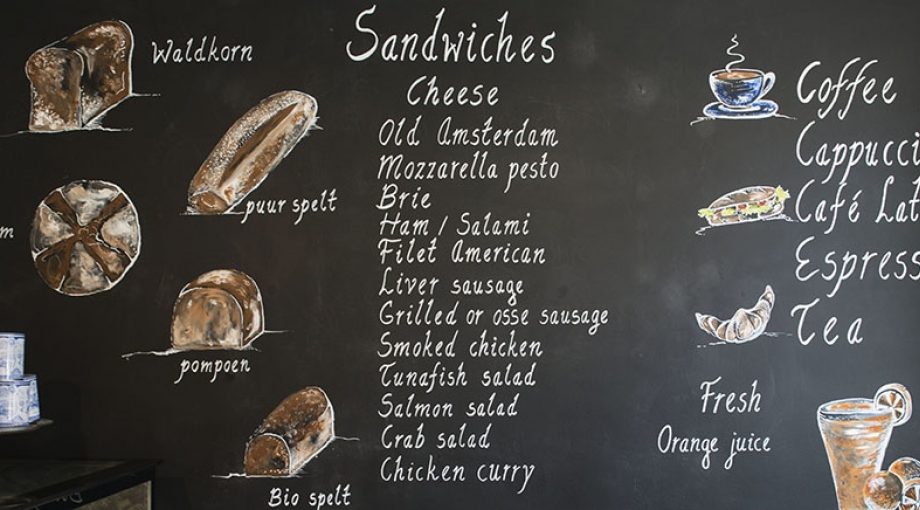 Waldkorn
puur spelt
m
pompoen
Bio spelt
Sandwiches
Cheese
Old Amsterdam
Mozzarella pesto
Brie
Ham / Salami
Filet American
Liver sausage
Grilled or osse sausage
Smoked chicken
Tunafish salad
Salmon salad
Crab salad
Chicken curry
Coffee
Cappucci
Café Lat
Espress
Tea
Fresh
Orange juice